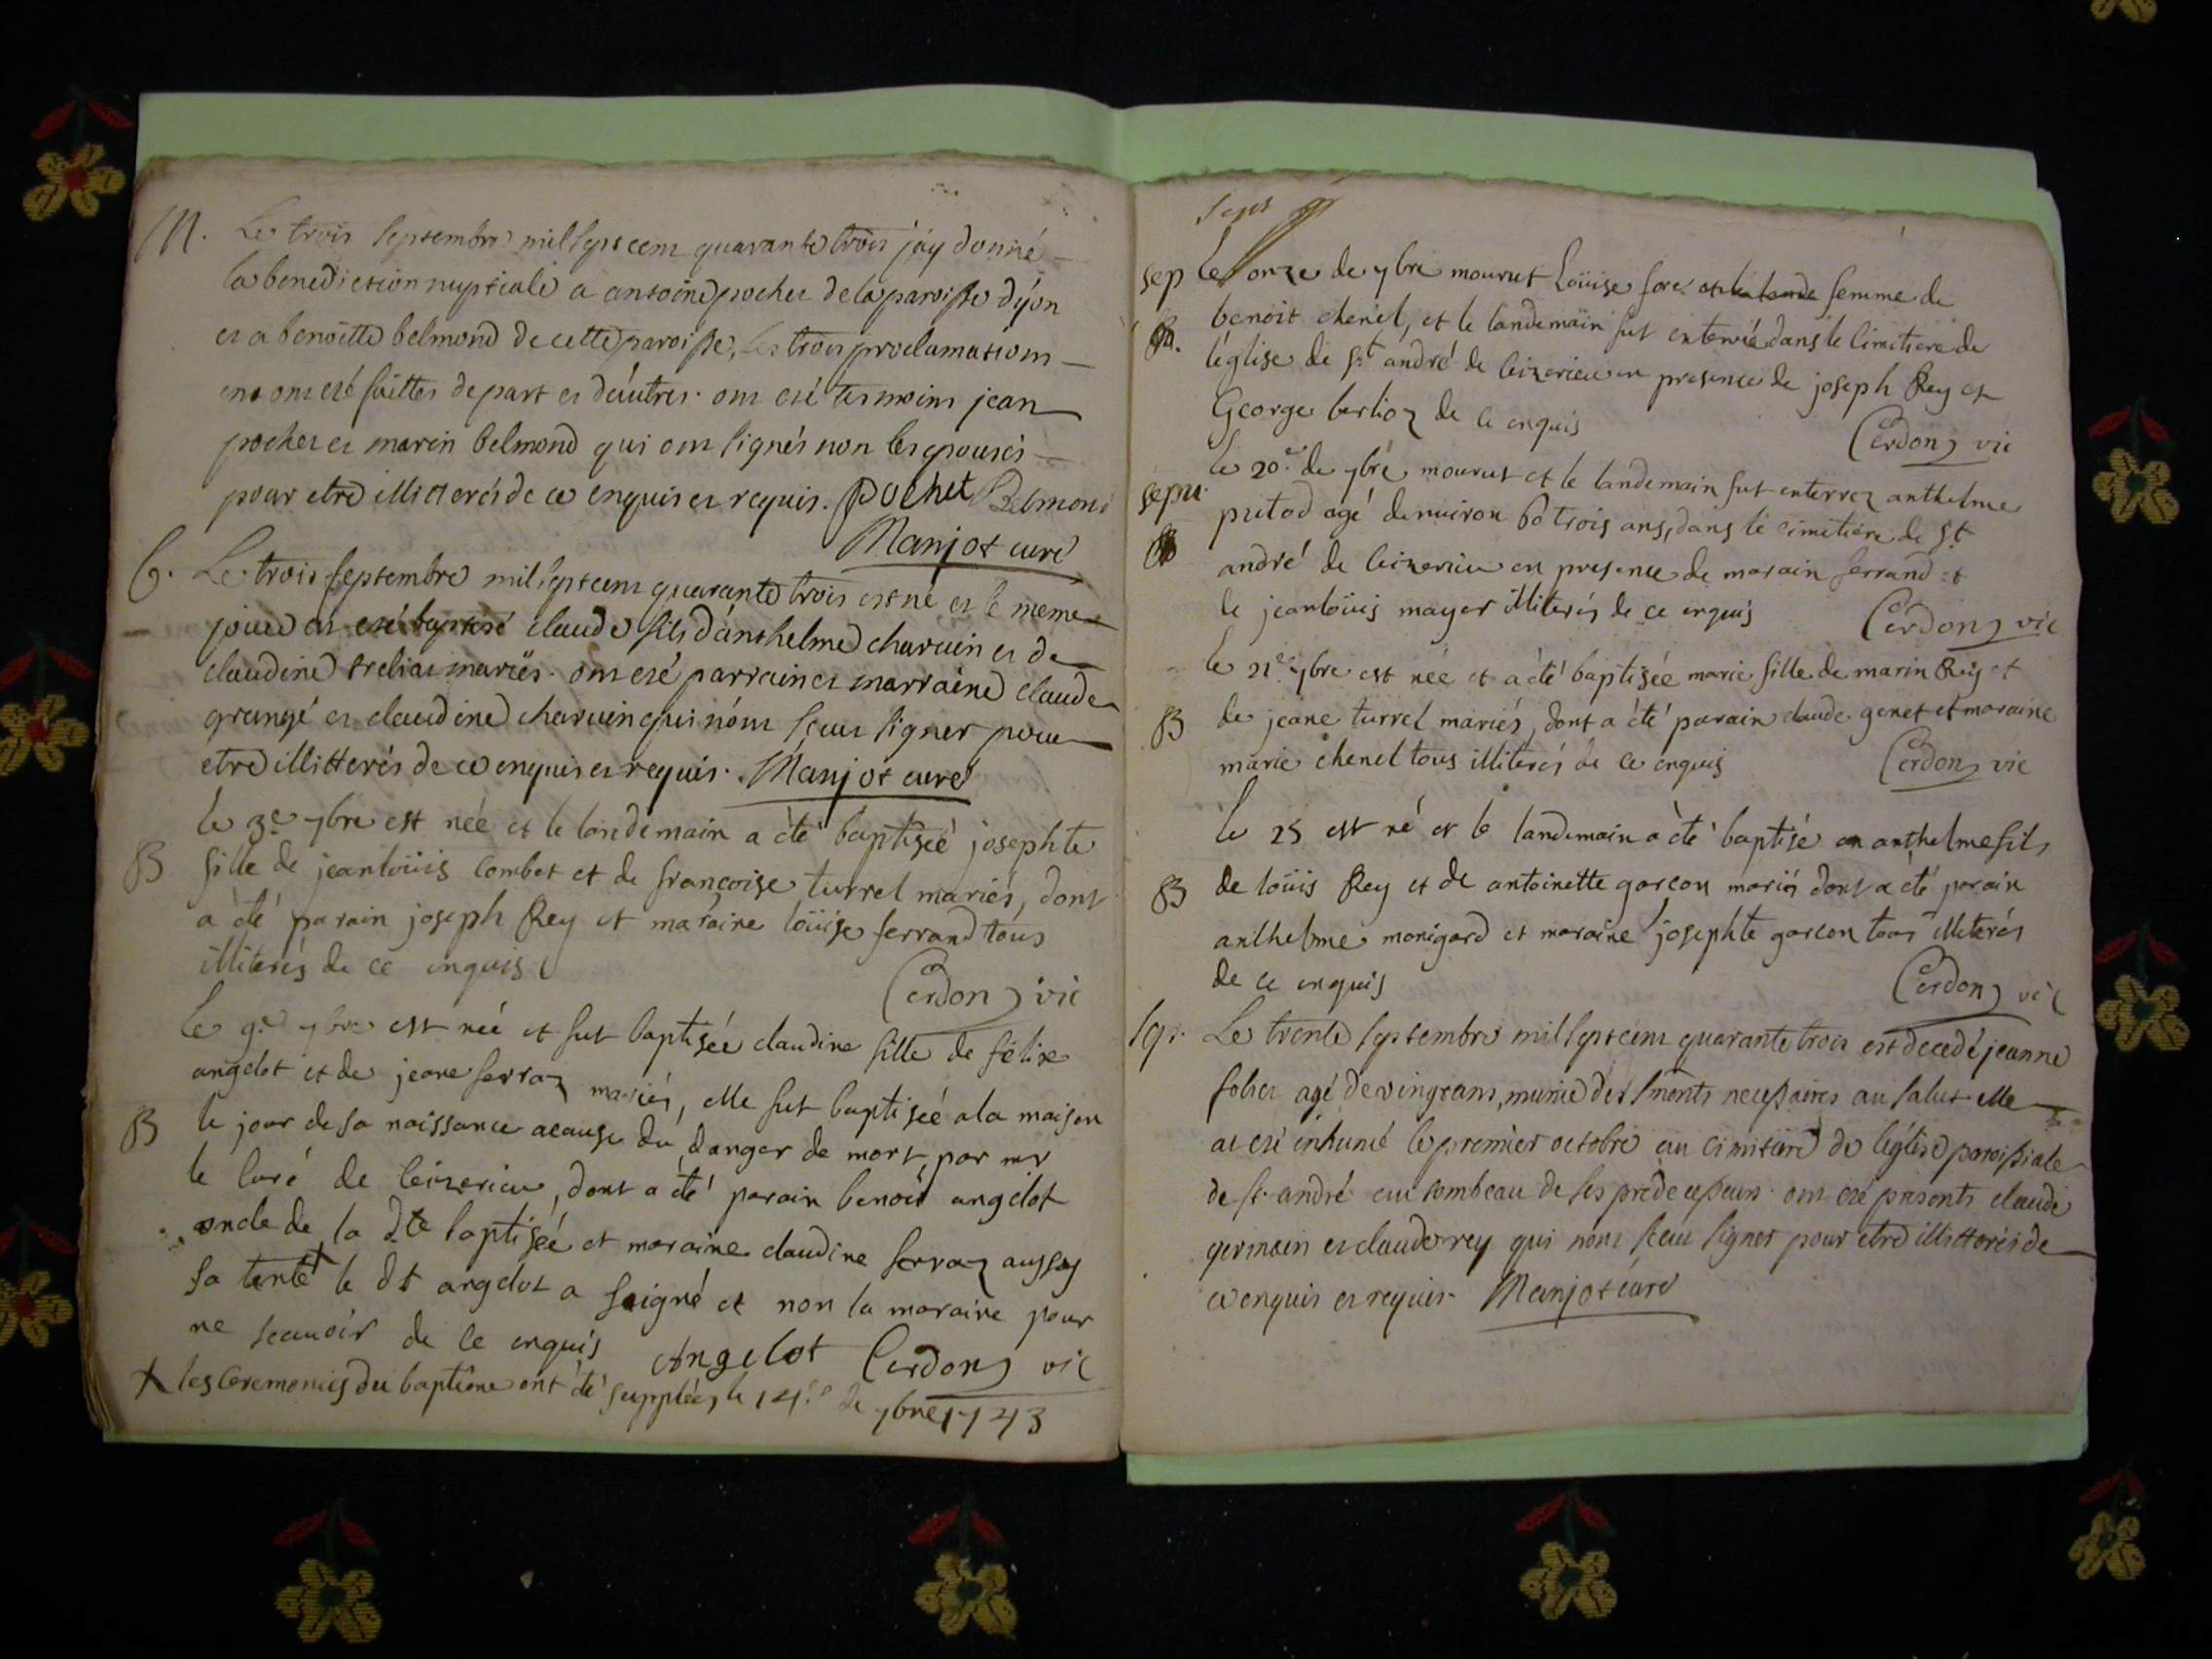 M. Le trois septembre mil sept cent quarante trois j'ay donné
la benediction nuptiale a antoine pochet de la paroisse d'yon
et a benoitte belmond de cette paroisse, les trois proclamations
ont eté faittes de part et d'autres. ont eté temoins jean
pochet et marin belmond qui ont signés non les epousés
pour etre illitterés de ce enquis et requis. pochet Belmond
Manjot curé
b. Le trois septembre mil sept cent quarante trois est né et le meme
jour a eté baptisé claude fils d'anthelme charvin et de
claudine treliat mariés. ont eté parrain et marraine claude
grangé et claudine charvin qui n'ont sceu signer pour
etre illitterés de ce enquis et requis. Manjot curé
le 3e 7bre est neé et le landemain a été baptiseé josephte
B fille de jean loüis combet et de françoise turrel mariés, dont
a été parain joseph Rey et maraine loüise ferrand tous
illiterés de ce enquis
Cerdon vic
Le 9e 7bre est neé et fut baptiseé claudine fille de félix
angelot et de jeane ferraz mariés, elle fut baptiseé a la maison
B le jour de sa naissance acause du danger de mort, par mr
le curé de ceizerieu, dont a été parain benoit angelot
oncle de la dte baptiseé et maraine claudine ferraz aussy
sa tente + le dt angelot a soigné et non la maraine pour
ne scauoir de ce enquis Angelot Cerdon vic
+ les ceremonies du baptême ont été suppleés le 14e de 7bre 1743
sept
sep Le onze de 7bre mourut Loüise forel femme de
benoit chenel, et le landemain fut enterreé dans le cimitiere de
l'église de St andré de ceizerieu en presence de joseph Rey et
George berlioz de ce enquis
Cerdon vic
le 20e de 7bre mourut et le landemain fut enterrez anthelme
sepu. putod agé denuiron 60 trois ans, dans le cimitiére de St
andré de ceizerieu en presence de marain ferrand et
de jean loüis mayer illiterés de ce enquis
Cerdon vic
le 21e 7bre est neé et a été baptiseé marie fille de marin Rey et
B de jeane turrel mariés, dont a été parain claude genet et maraine
marie chenel tous illiterés de ce enquis
Cerdon vic
le 25 est né et le landemain a été baptisé anthelme fils
B de loüis Rey et de antoinette garcon mariés dont a été parain
anthelme monigard et maraine josephte garcon tous illiterés
de ce enquis
Cerdon vic
sep. Le trente septembre mil sept cent quarante trois est decedé jeanne
agé de vingt ans, munie des sments necessaires au salut elle
a eté inhumé le premier octobre au cimitiere de l'église paroissiale
de st. andré au tombeau de ses predecesseurs. ont eté presents claude
germain et claude rey qui n'ont sceu signer pour etre illitterés de
ce enquis et requis. Manjot curé